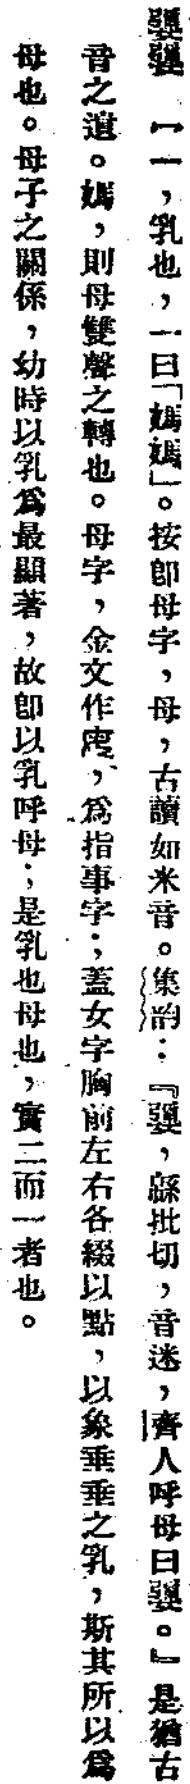 㜷㜷　（一），乳也，一曰「媽媽」。按卽母字，母，古讀如米音。集韵：『㜷，緜批切，音迷，齊人呼母曰㜷。』是猶古
音之遺。媽，則母雙聲之轉也。母字，金文作，爲指事字；蓋女字胸前左右各綴以點，以象垂垂之乳，斯其所以爲
母也。母子之關係，幼時以乳爲最顯著，故卽以乳呼母；是乳也母也，實二而一者也。